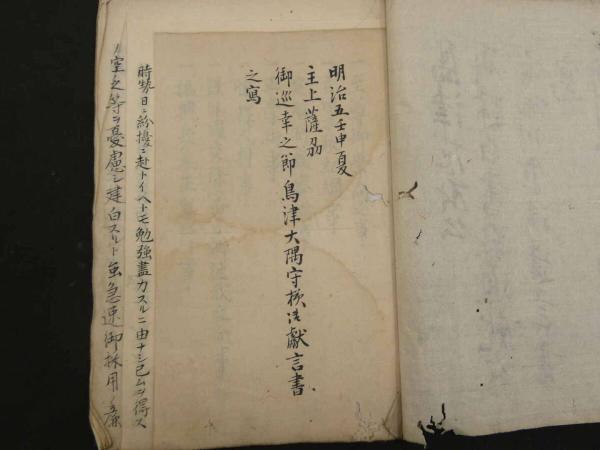 明治五壬申夏
主上薩刕
御巡幸之節島津大隅守様御献言書
之寫
時勢日ニ紛擾ニ赴トイヘトモ勉強盡力スルニ由ナシ已ムヲ得ス
室之等ヲ憂慮シ建白スルト虽急速御採用ノ